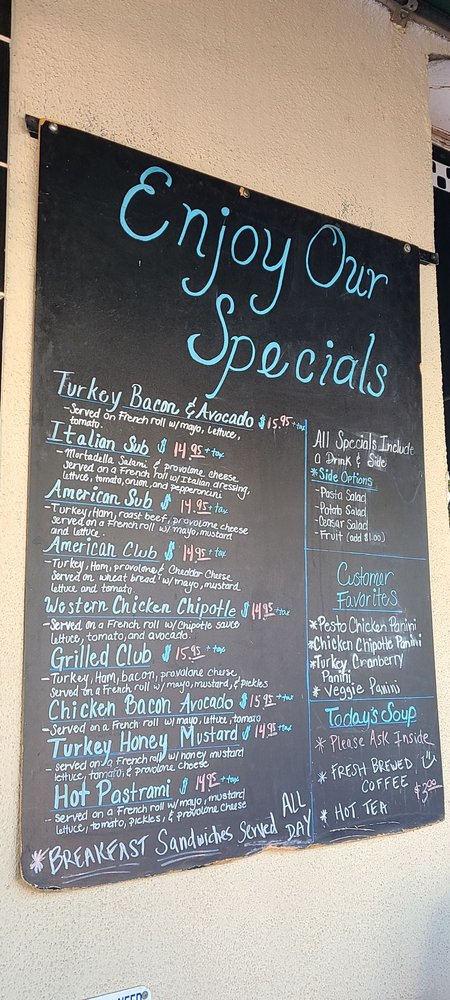 Enjoy Our
Specials
Turkey Bacon & Avocado $15.95 + tax
- Served on French roll w/mayo, lettuce,
tomato.
Italian Sub $14.95 + tax
- Mortadella Salami & provolone cheese
Served on a French roll w/Italian dressing,
lettuce, tomato, onion, and pepperoncini
American Sub $14.95 + tax
- Turkey, Ham, roast beef, provolone cheese
served on a French roll w/mayo, mustard
and lettuce.
American Club $14.95 + tax
- Turkey, Ham, provolone & Cheddar Cheese
Served on wheat bread w/mayo, mustard
lettuce and tomato.
Western Chicken Chipotle $14.95 + tax
- Served on a French roll w/Chipotle sauce
lettuce, tomato, and avocado
Grilled Club $15.95 + tax
- Turkey, Ham, bacon, provolone cheese,
Served on a French roll w/mayo, mustard, & pickles
Chicken Bacon Avocado $15.95 + tax
- Served on a French roll w/mayo, lettuce, tomato
Turkey Honey Mustard $14.95 + tax
- served on a French roll w/honey mustard
lettuce, tomato, & provolone cheese
Hot Pastrami $14.95 + tax
- Served on a French roll w/mayo, mustard
lettuce, tomato, pickles, & provolone Cheese
* BREAKFAST Sandwiches Served ALL DAY
All Specials Include
a Drink & Side
*Side Options
- Pasta Salad
- Potato Salad
- Ceasar Salad
- Fruit (add $1.00)
Customer
Favorites
*Pesto Chicken Panini
*Chicken Chipotle Panini
*Turkey Cranberry
Panini
* Veggie Panini
Today's Soup
* Please Ask Inside
* FRESH BREWED
COFFEE $3.00
* HOT TEA